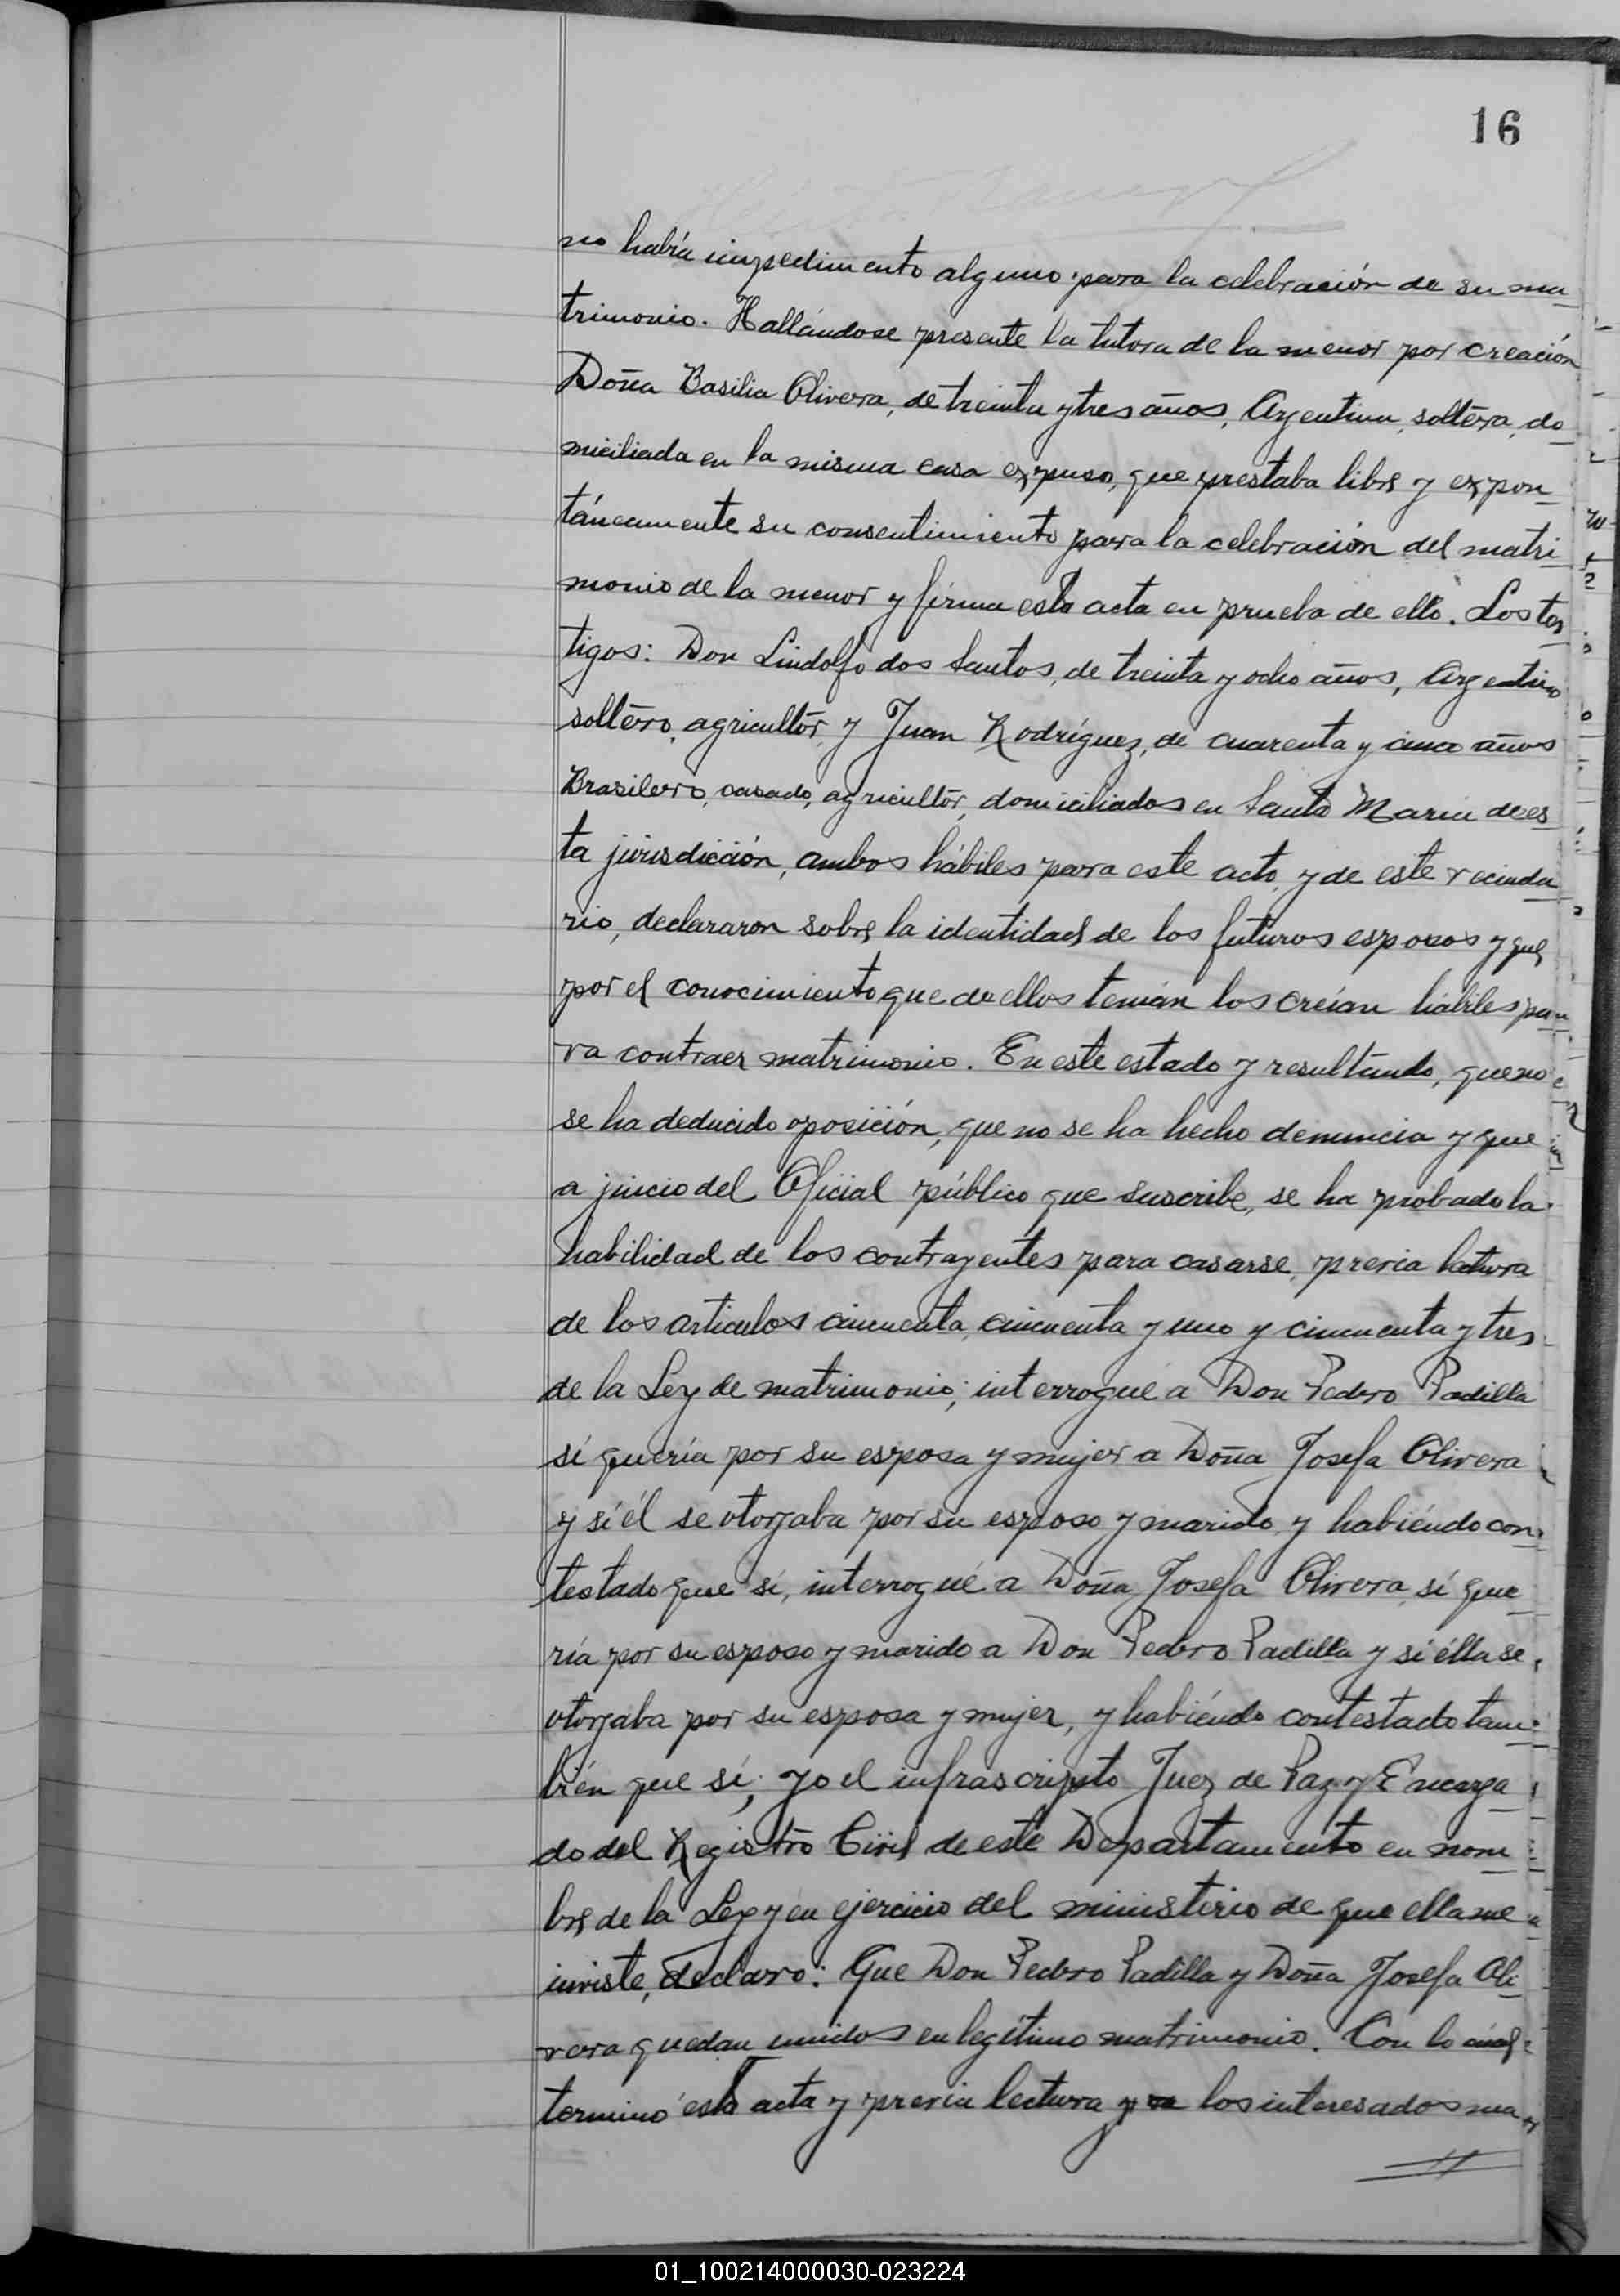 16
no había impedimento alguno para la celebración de su ma_
trimonio. Hallándose presente la tutora de la menor por creación
Doña Basilia Olivera, de treinta y tres años, Argentina, soltera, do_
miciliada en la misma casa expuso, que prestaba libre y expon_
táneamente su consentimiento para la celebración del matri_
monio de la menor y firma esta acta en prueba de ello. Los tes_
tigos: Don Lindolfo dos Santos, de treinta y ocho años, Argentino
soltero, agricultor, y Juan Rodríguez, de cuarenta y cinco años
Brasilero, casado, agricultor, domiciliados en Santa María de es_
ta jurisdicción, ambos hábiles para este acto, y de este vecinda_
rio, declararon sobre la identidad de los futuros esposos y que
por el conocimiento que de ellos tenían los creían hábiles pa_
ra contraer matrimonio. En este estado y resultando, que no
se ha deducido oposición, que no se ha hecho denuncia y que
a juicio del Oficial público que suscribe, se ha probado la
habilidad de los contrayentes para casarse, previa lectura
de los articulos cincuenta, cincuenta y uno y cincuenta y tres
de la Ley de matrimonio; interrogué a Don Pedro Padilla
sí quería por su esposa y mujer a Doña Josefa Olivera
y sí él se otorgaba por su esposo y marido, y habiéndo con_
testado que sí, interrogué a Doña Josefa Olivera, sí que_
ría por su esposo y marido a Don Pedro Padilla y sí élla se
otorgaba por su esposa y mujer, y habiéndo contestado tam_
bién que sí; yo el infrascripto Juez de Paz y Encarga_
do del Registro Civil de este Departamento en nom_
bre de la Ley y en ejercicio del ministerio de que ella me
inviste, declaro: Que Don Pedro Padilla y Doña Josefa Oli_
vera quedan unidos en legítimo matrimonio. Con lo cuál
terminó esta acta y previa lectura los interesados ma_
01_100214000030-023224